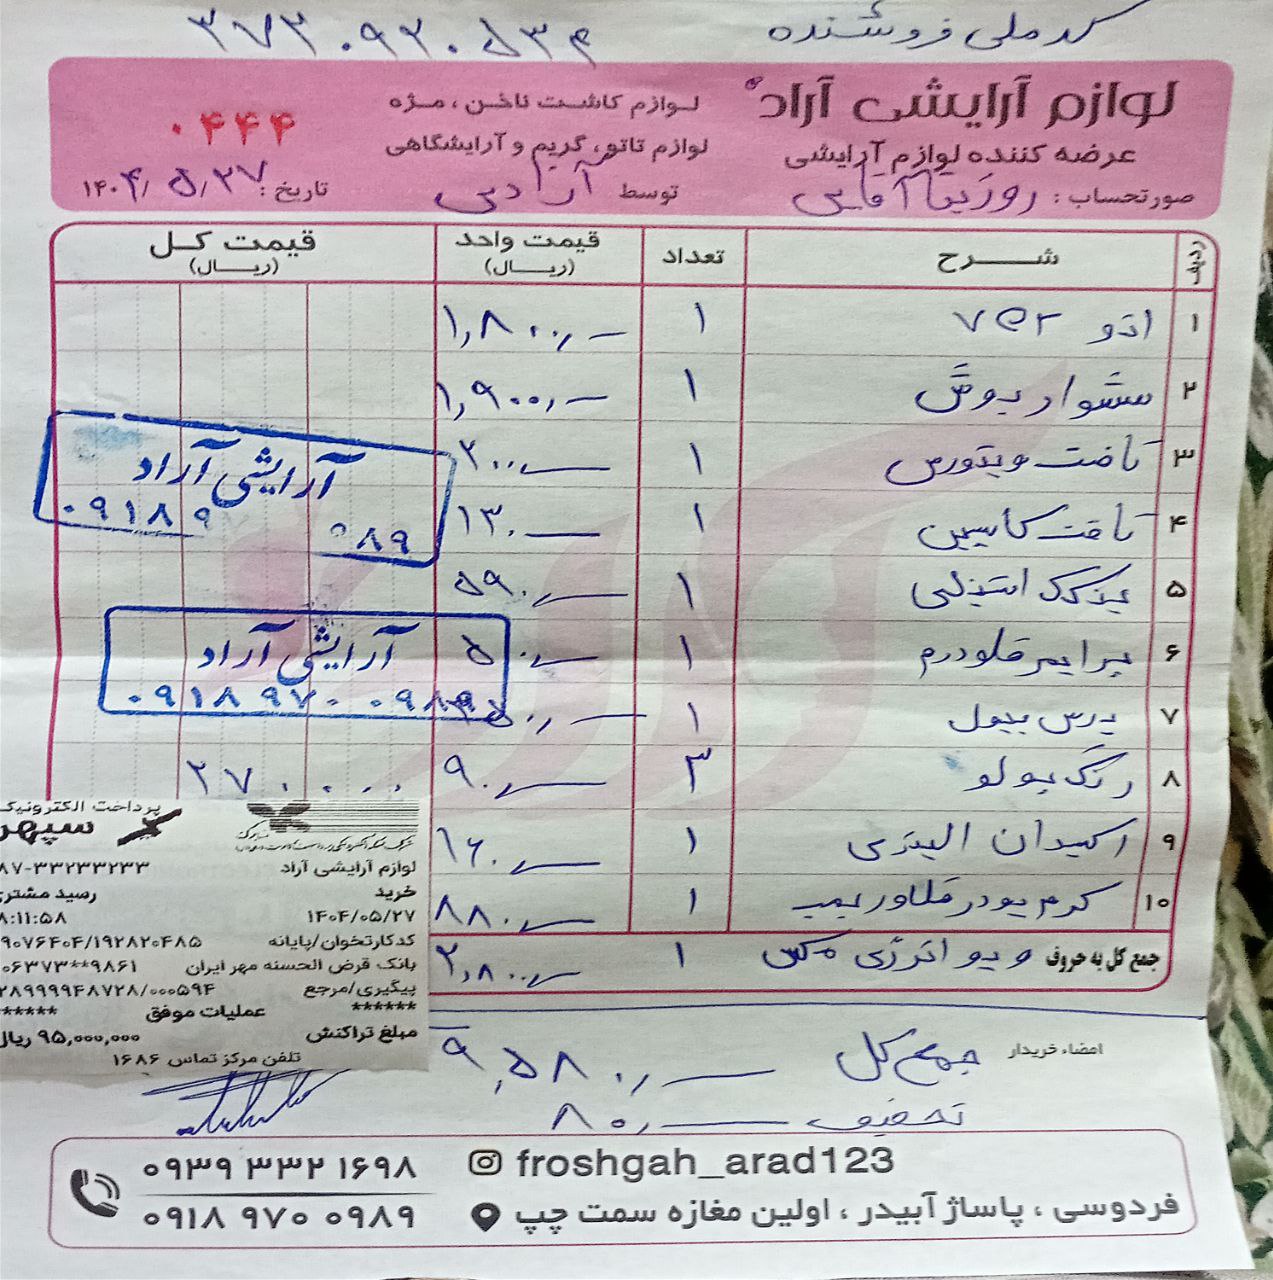 کد ملی فروشنده ۳۷۳۰۹۲۰۵۳۴
لوازم آرایشی آراد
عرضه کننده لوازم آرایشی
لوازم کاشت ناخن ، مژه
لوازم تاتو، گریم و آرایشگاهی
۰۴۴۴
صورتحساب : روژینا آقایی توسط آرادی تاریخ : ۱۴۰۴/۵/۲۷
ردیف شرح تعداد قیمت واحد (ریال) قیمت کل (ریال)
۱ اتو ۷۵۲ ۱ ۱,۸۰۰,
۲ سشوار بوش ۱ ۱,۹۰۰,
۳ تافت ویتورس ۱ ۲۰۰,
۴ تافت کاسپین ۱ ۱۳۰,
۵ ۱ ۵۹۰,
۶ پرایمر فلودرم ۱ ۵۰,
۷ برس بیول ۱
۸ رنگ پولو ۳ ۹۰, ۲۷۰
۹ اکسیدان الیتری ۱ ۱۶۰,
۱۰ کرم پودر فلاور بمب ۱ ۸۸۰,
جمع کل به حروف ویو انرژی مکس ۱ ۲,۸۰۰,
آرایشی آراد
۰۹۱۸۹ ۹۸۹
آرایشی آراد
۰۹۱۸ ۹۷۰ ۰۹۸۹
پرداخت الکترونیک
سپهر
لوازم آرایشی آراد ۸۷-۳۳۲۳۳۲۳۳
خرید رسید مشتری
۱۴۰۴/۰۵/۲۷ ۸:۱۱:۵۸
کدکارتخوان/پایانه ۹۰۷۶۴۰۴/۱۹۲۸۲۰۴۸۵
بانک قرض الحسنه مهر ایران ۰۶۳۷۳**۹۸۶۱
پیگیری/مرجع ۲۸۹۹۹۹۴۸۷۲۸/۰۰۰۵۹۴
****** عملیات موفق ******
مبلغ تراکنش ۹۵,۰۰۰,۰۰۰ ریال
تلفن مرکز تماس ۱۶۸۶
امضاء خریدار
جمع کل ۹,۵۸۰,
تخفیف ۸۰,
۰۹۳۹ ۳۳۲ ۱۶۹۸
۰۹۱۸ ۹۷۰ ۰۹۸۹
froshgah_arad123
فردوسی ، پاساژ آبیدر ، اولین مغازه سمت چپ